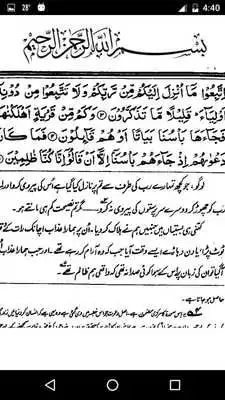 28° 4:40
بسم الله الرحمن الرحيم
اِتَّبِعُوْا مَآ اُنْزِلَ اِلَيْكُمْ مِّنْ رَّبِّكُمْ وَلَا تَتَّبِعُوْا مِنْ دُوْنِهٖٓ
اَوْلِيَآءَ ؕ قَلِيْلًا مَّا تَذَكَّرُوْنَ ﴿۳﴾ وَكَمْ مِّنْ قَرْيَةٍ اَهْلَكْنٰهَا
فَجَآءَهَا بَاْسُنَا بَيَاتًا اَوْ هُمْ قَآئِلُوْنَ ﴿۴﴾ فَمَا كَانَ
دَعْوٰىهُمْ اِذْ جَآءَهُمْ بَاْسُنَآ اِلَّآ اَنْ قَالُوْٓا اِنَّا كُنَّا ظٰلِمِيْنَ ﴿۵﴾
لوگو، جو کچھ تمہارے رب کی طرف سے تم پر نازل کیا گیا ہے اُس کی پیروی کرو اور اپنے
رب کو چھوڑ کر دوسرے سرپرستوں کی پیروی نہ کرو۔ مگر تم نصیحت کم ہی مانتے ہو۔
کتنی ہی بستیاں ہیں جنہیں ہم نے ہلاک کر دیا۔ اُن پر ہمارا عذاب اچانک رات کے
ٹوٹ پڑا، یا دن دہاڑے ایسے وقت آیا جب کہ وہ آرام کر رہے تھے۔ اور جب ہمارا عذاب
آ گیا تو ان کی زبان پر اس کے سوا کوئی صدا نہ تھی کہ واقعی ہم ظالم تھے۔
حاصل ہو جاتا ہے۔